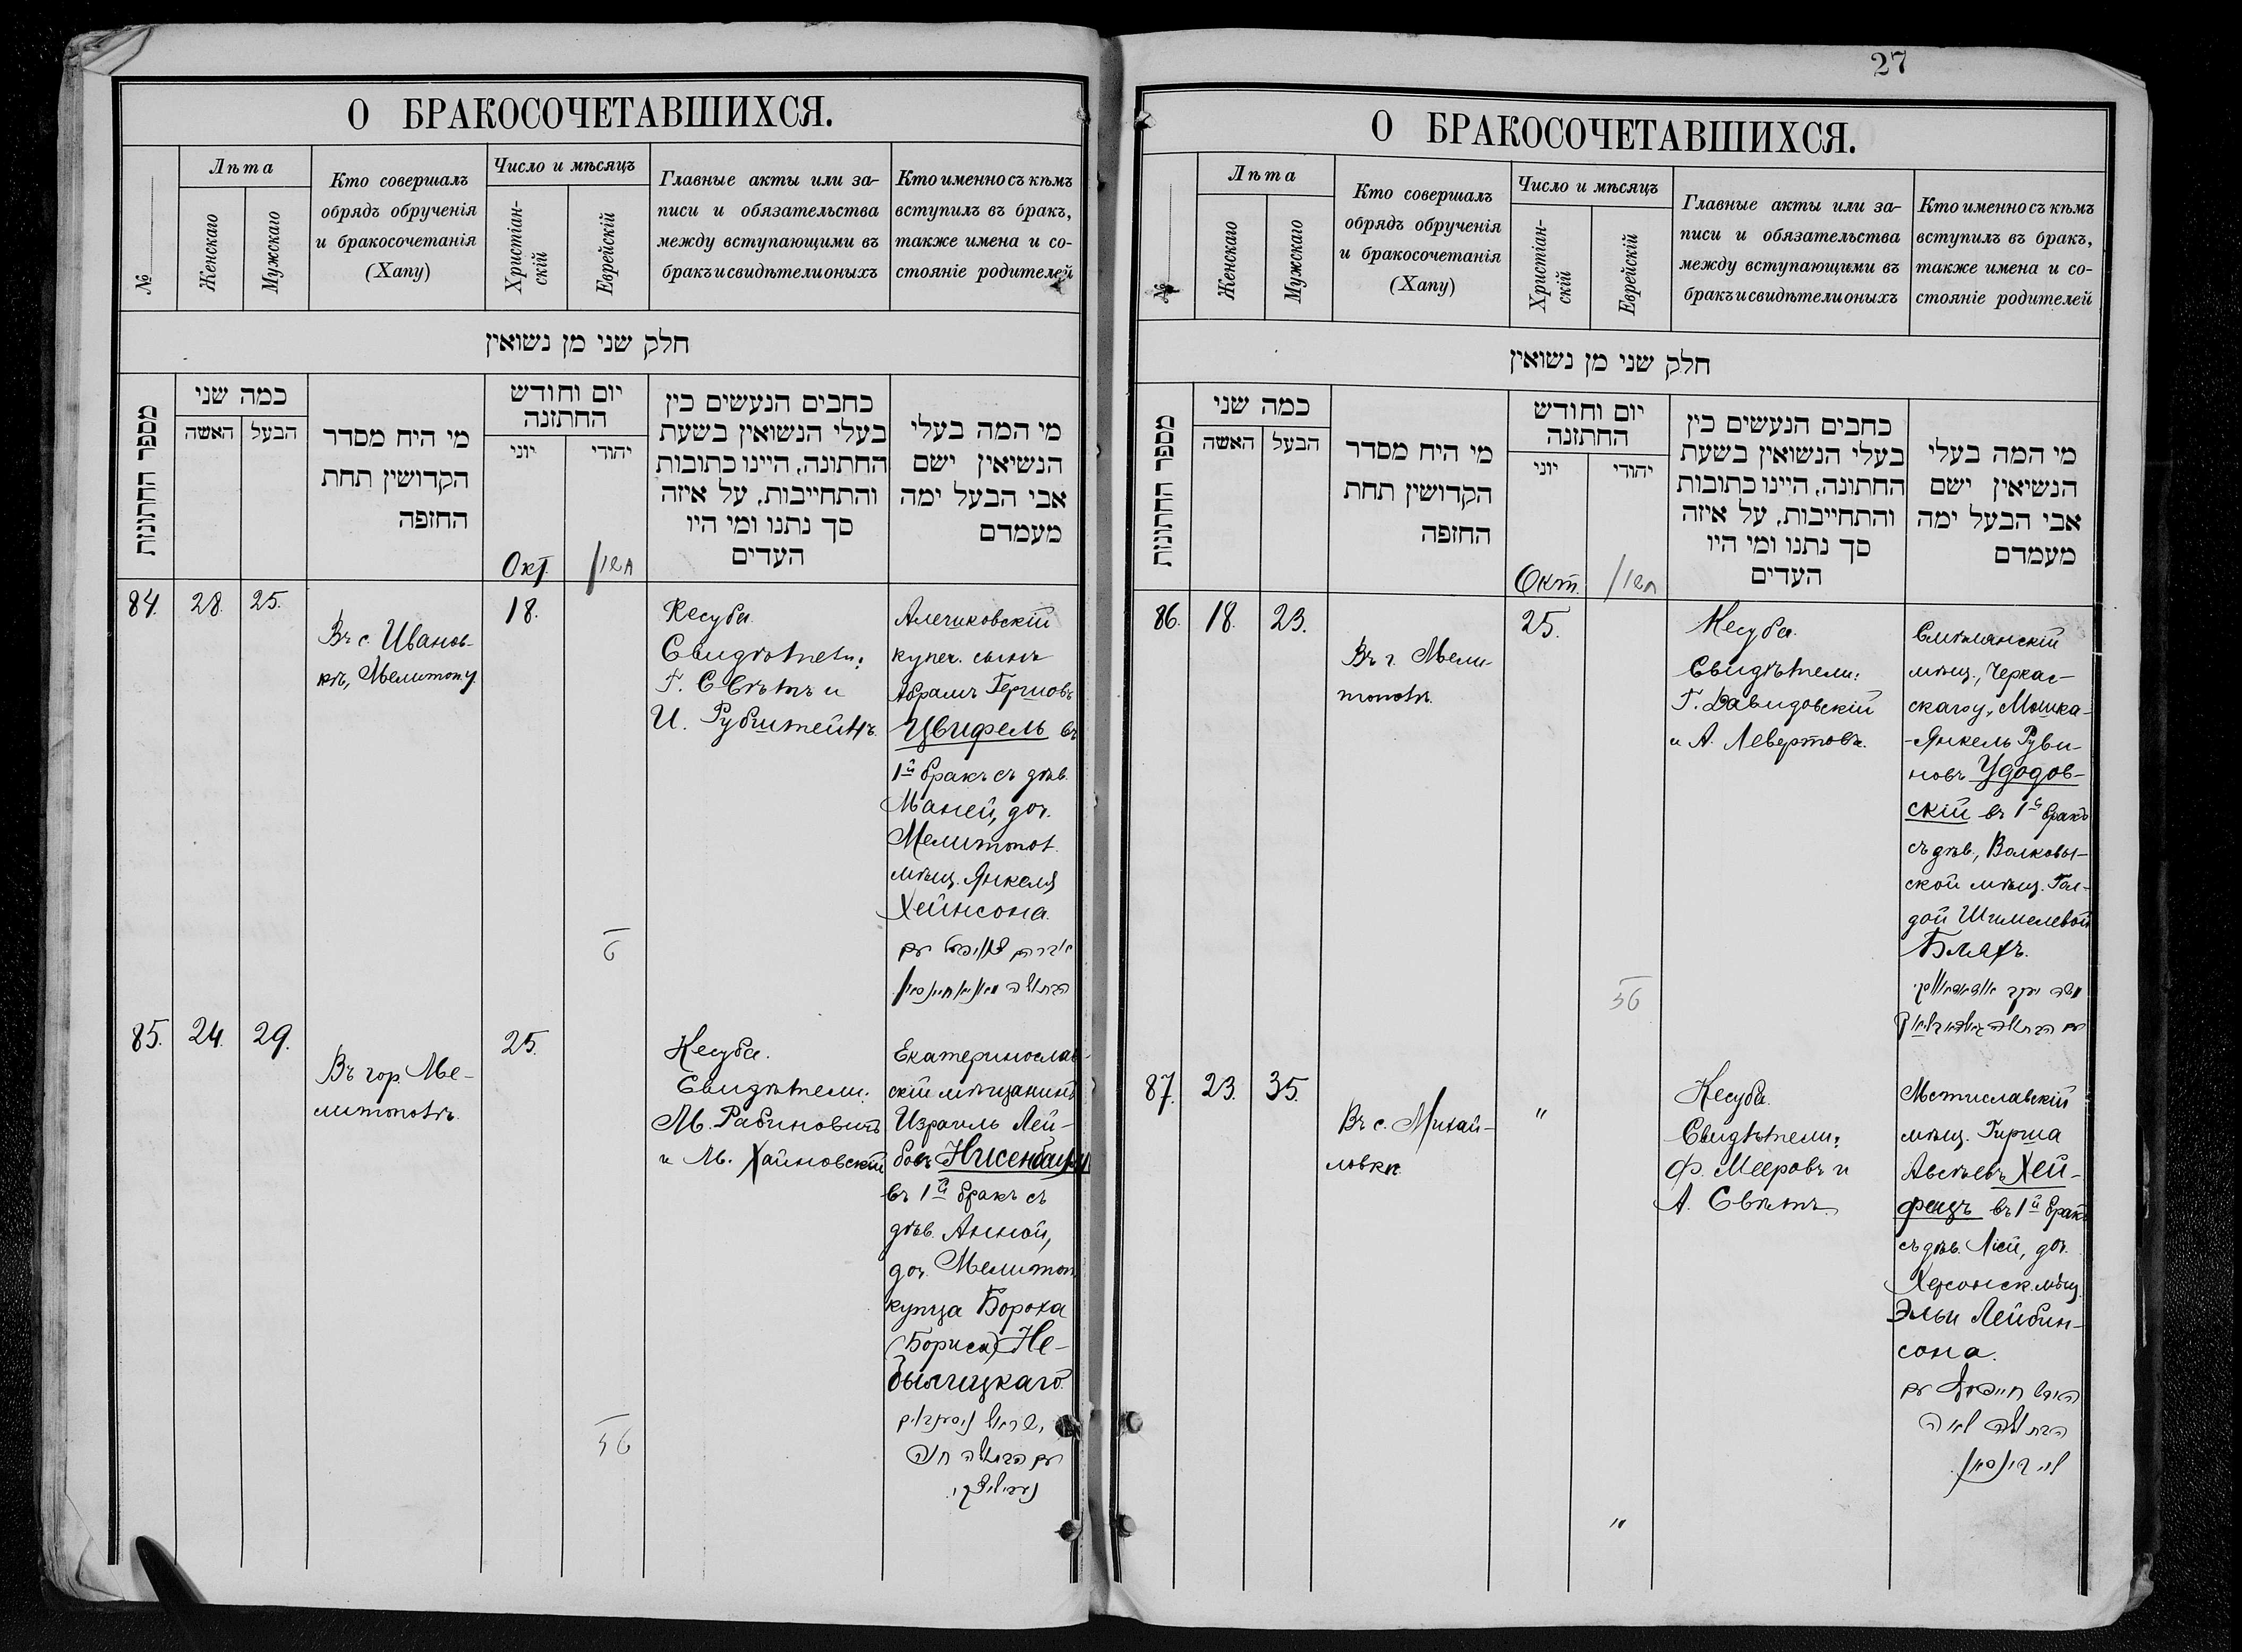 О БРАКОСОЧЕТАВШИХСЯ.
№
Лѣта
Женскаго
Мужскаго
Кто совершалъ
обрядъ обрученія
и бракосочетанія
(Хапу)
Число и мѣсяцъ
Христіан-
скій
Еврейскій
Главные акты или за-
писи и обязательства
между вступающими въ
бракъ и свидѣтели оныхъ
Кто именно съ кѣмъ
вступилъ въ бракъ,
также имена и со-
стояніе родителей
חלק שני מן נשואין
מספר החתונות
כמה שני
האשה
הבעל
מי היח מסדר
הקדושין תחת
החזפה
יום וחודש
החתזנה
יוני
יהודי
כחבים הנעשים כין
בעלי הנשואין בשעת
החתונה, היינו כתובות
והתחייבות, על איזה
סך נתנו ומי היו
העדים
מי המה בעלי
הנשיאין ישם
אבי הבעל ימה
מעמדם
Окт.
84.
28.
25.
Въ с. Иванов-
кѣ, Мелитоп. у.
18.
Кесуба.
Свидѣтели:
Г. Свѣтъ и
И. Рубштейнъ.
Алешковскій
купеч. сынъ
Абрамъ Гершовъ
Цвифель въ
1й бракъ съ дѣв.
Маней, доч.
Мелитопол.
мѣщ. Янкеля
Хейнсона.
85.
24.
29.
Въ гор. Ме-
литополѣ.
25.
Кесуба.
Свидѣтели:
М. Рабиновичъ
и М. Хайновскій
Екатеринослав-
скій мѣщанинъ
Израиль Лей-
бовъ Нисенбаумъ
въ 1й бракъ съ
дѣв. Анной,
доч. Мелитоп.
купца Бороха
(Бориса) Не-
былицкаго.
27
О БРАКОСОЧЕТАВШИХСЯ.
№
Лѣта
Женскаго
Мужскаго
Кто совершалъ
обрядъ обрученія
и бракосочетанія
(Хапу)
Число и мѣсяцъ
Христіан-
скій
Еврейскій
Главные акты или за-
писи и обязательства
между вступающими въ
бракъ и свидѣтели оныхъ
Кто именно съ кѣмъ
вступилъ въ бракъ,
также имена и со-
стояніе родителей
חלק שני מן נשואין
מספר החתונות
כמה שני
האשה
הבעל
מי היח מסדר
הקדושין תחת
החזפה
יום וחודש
החתזנה
יוני
יהודי
כחבים הנעשים כין
בעלי הנשואין בשעת
החתונה, היינו כתובות
והתחייבות, על איזה
סך נתנו ומי היו
העדים
מי המה בעלי
הנשיאין ישם
אבי הבעל ימה
מעמדם
Окт.
86.
18.
23.
Въ г. Мели-
тополѣ.
25.
Кесуба.
Свидѣтели:
Г. Давидовскій
и А. Левертовъ.
Смѣлянскій
мѣщ., Черкас-
скаго у., Мошка-
-Янкель Руви-
новъ Удодов-
скій въ 1й бракъ
съ дѣв., Волковы-
ской мѣщ. Гол-
дой Шмелевой
Бляхъ.
87.
23.
35.
Въ с. Михай-
ловкѣ
"
Кесуба.
Свидѣтели:
Ф. Мееровъ и
А. Свѣтъ.
Мстиславскій
мѣщ. Гирша
Авсѣевъ Хей-
фецъ въ 1й бракъ
съ дѣв. Ліей, доч.
Херсонск. мѣщ.
Эльи Лейбин-
сона.
"